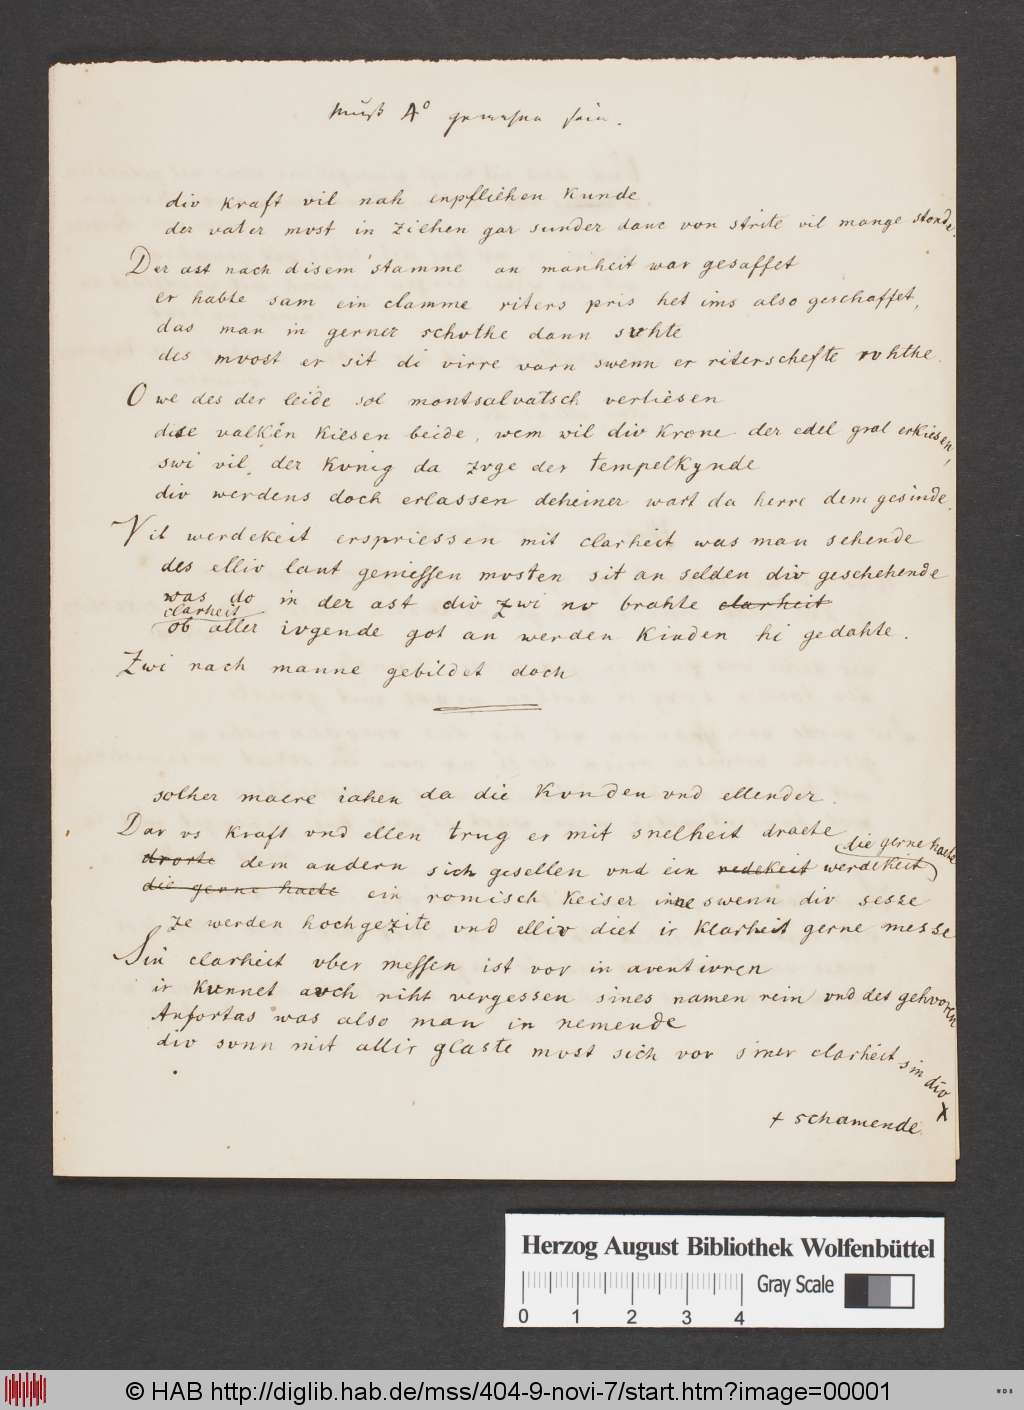 Muß 4o gewesen sein.
div kraft vil nah enpfliehen kunde
der vater mvst in ziehen gar sunder danc von strite vil mange stonde.
Der ast nach disem stamme an manheit war gesaffet
er habte sam ein clamme riters pris het ims also geschaffet,
das man in gerner schvthe dann svhte
des mvost er sit di virre varn swenn er riterschefte rvhthe.
O we des der leide sol montsalvatsch verliesen
dise valken kiesen beide, wem wil div krone der edel gral erkiesen,
swi vil der kvnig da zvge der tempelkynde
div werdens doch erlassen deheiner wart da herre dem gesinde.
Vil werdekeit erspriessen mit clarheit was man sehende
des elliv lant geniessen mvsten sit an selden div geschehende
was do in der ast div zwi nv brahte clarheit
clarheit
ob aller ivgende got an werden kinden hi gedahte.
Zwi nach manne gebildet doch
solher maere iahen da die kvnden vnd ellender.
Dar vs kraft vnd ellen trug er mit snelheit draete
die gerne haete
drorte dem andern sich gesellen vnd ein redekeit werdekeit
die gerne haete ein romisch keiser inne swenn div sesze
ze werden hochgezite vnd elliv diet ir klarheit gerne messe
Sin clarheit vber messen ist vor in aventivren
ir kunnet avch niht vergessen sines namen rein vnd des gehvoren
Anfortas was also man in nemende
div sonn mit allir glaste mvst sich vor siner clarheit sin div x
+ schamende.
Herzog August Bibliothek Wolfenbüttel
Gray Scale
0 1 2 3 4
© HAB http://diglib.hab.de/mss/404-9-novi-7/start.htm?image=00001